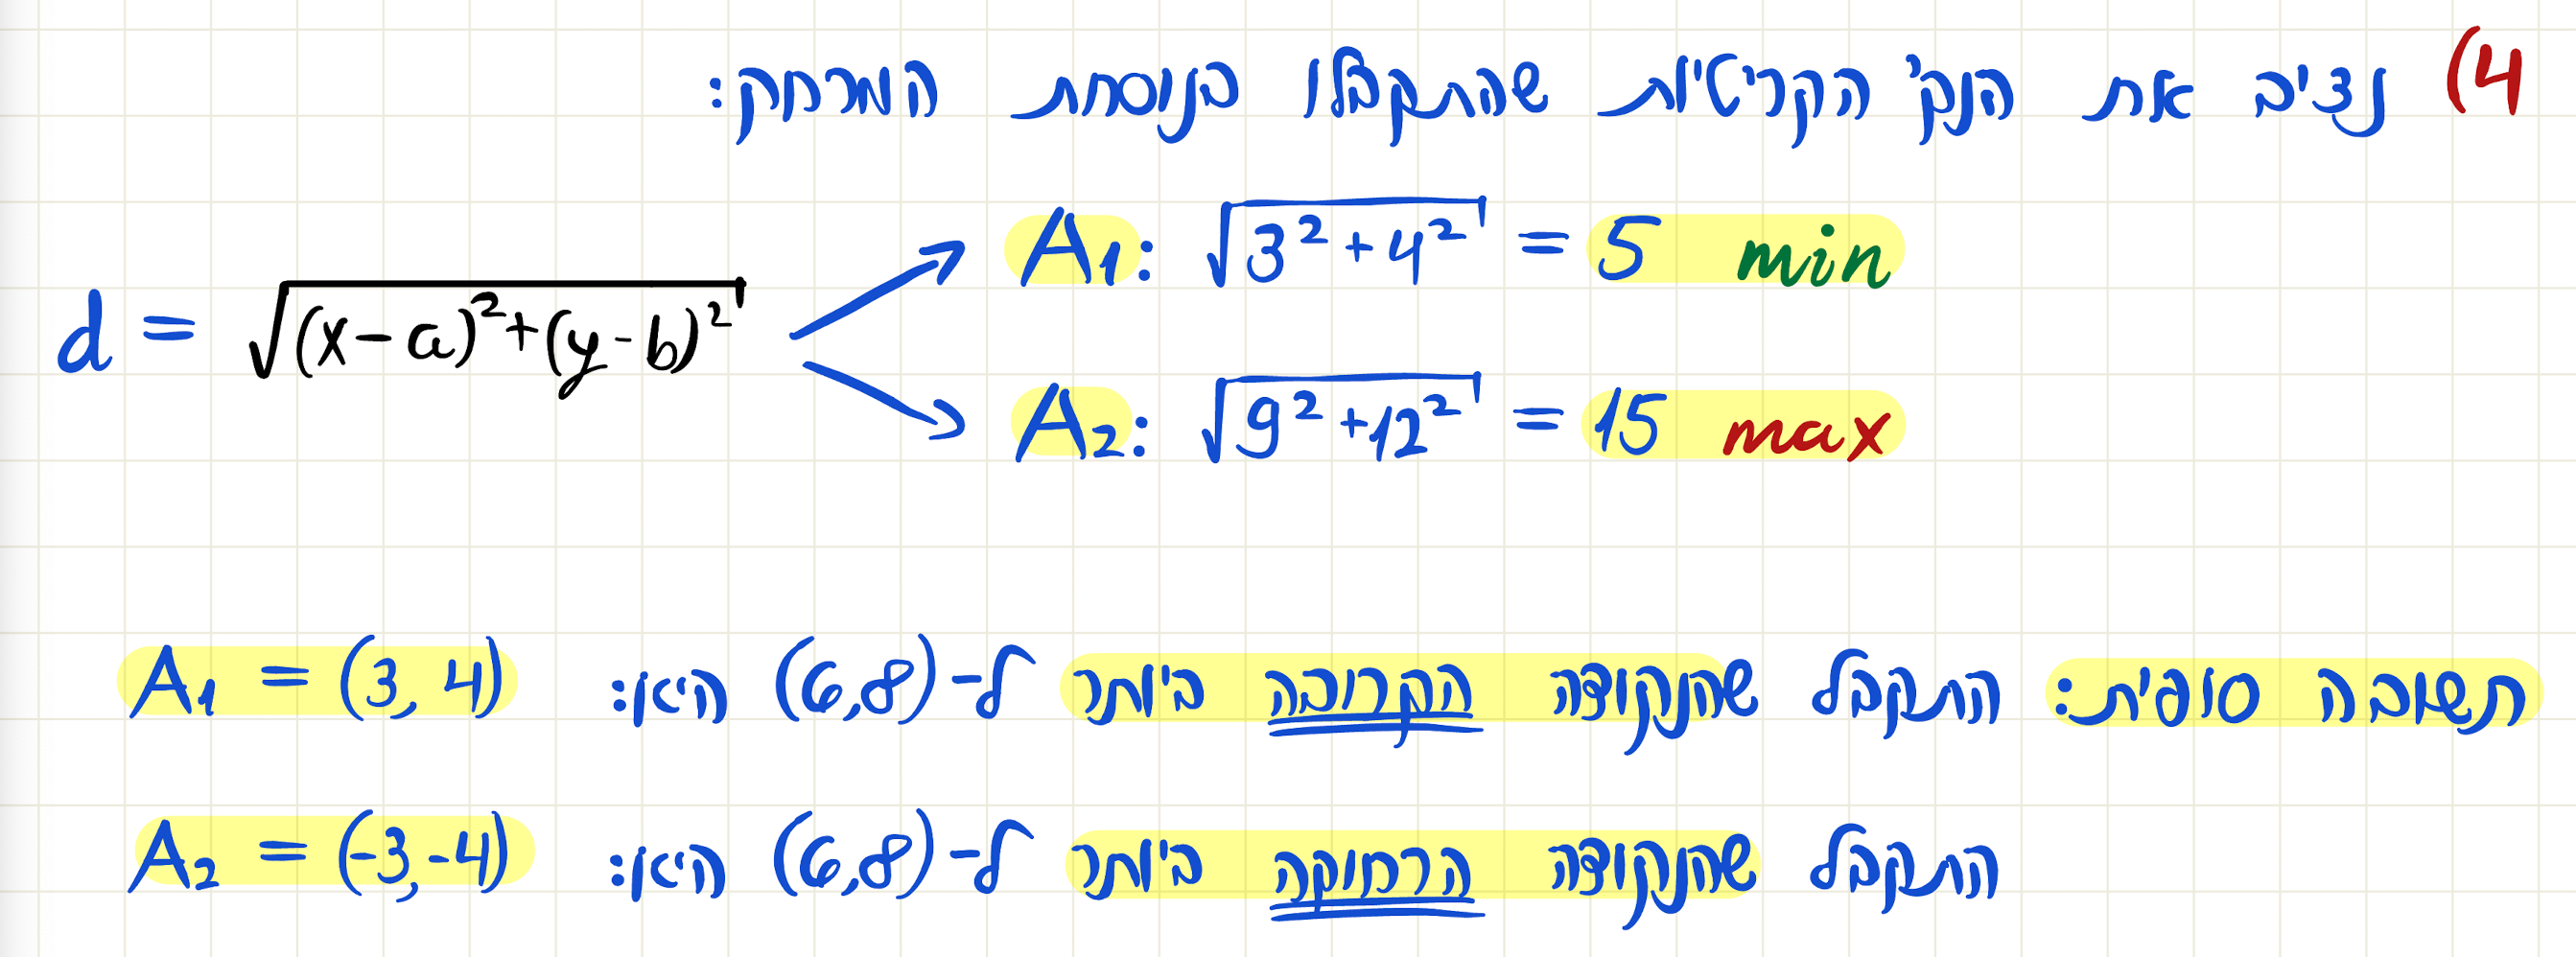 4) נציב את הנק' הקריטיות שהתקבלו בנוסחת המרחק:
d = √((x-a)²+(y-b)²)
A₁: √(3²+4²) = 5 min
A₂: √(9²+12²) = 15 max
תשובה סופית: התקבל שהנקודה הקרובה ביותר ל-(6,8) היא: A₁ = (3, 4)
התקבל שהנקודה הרחוקה ביותר ל-(6,8) היא: A₂ = (-3,-4)